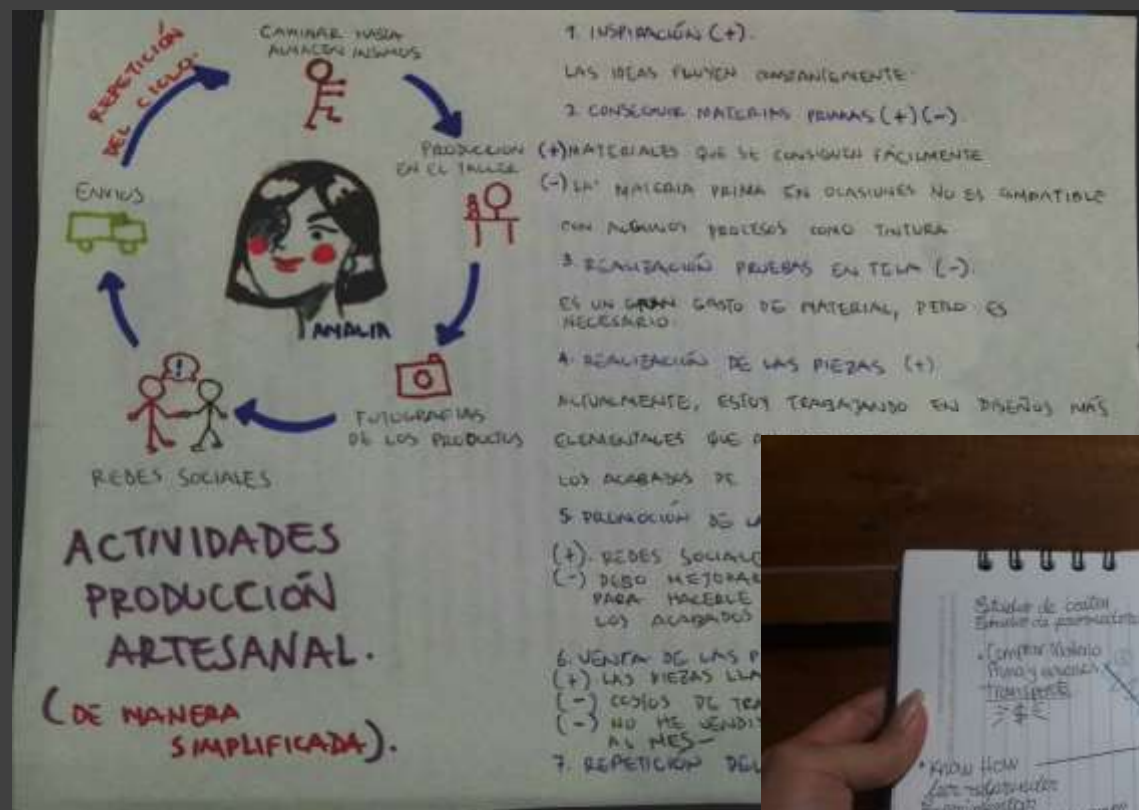 REPETICIÓN
DEL CICLO.
CAMINAR HASTA
ALMACEN INSUMOS
PRODUCCION
EN EL TALLER
FOTOGRAFIAS
DE LOS PRODUCTOS
REDES SOCIALES
ENVIOS
AMALIA
ACTIVIDADES
PRODUCCIÓN
ARTESANAL.
(DE MANERA
SIMPLIFICADA).
1. INSPIRACIÓN (+).
LAS IDEAS FLUYEN CONSTANTEMENTE.
2. CONSEGUIR MATERIAS PRIMAS (+) (-).
(+) MATERIALES QUE SE CONSIGUEN FÁCILMENTE
(-) LA MATERIA PRIMA EN OCASIONES NO ES COMPATIBLE
CON ALGUNOS PROCESOS COMO TINTURA
3. REALIZACIÓN PRUEBAS EN TELA (-).
ES UN GRAN GASTO DE MATERIAL, PERO ES
NECESARIO.
4. REALIZACIÓN DE LAS PIEZAS (+)
ACTUALMENTE, ESTOY TRABAJANDO EN DISEÑOS MÁS
ELEMENTALES QUE
LOS ACABADOS DE
5. PROMOCIÓN DE
(+). REDES
(-) DEBO MEJORAR
PARA HACERLE
LOS ACABADOS
6. VENTA DE LAS P
(+) LAS PIEZAS
(-) COSTOS DE
(-) NO HE
AL MES-
7. REPETICIÓN DEL
Estudio de costos
Estudio de
Comprar
Prima y
TRANSPORTE
$
KNOW HOW